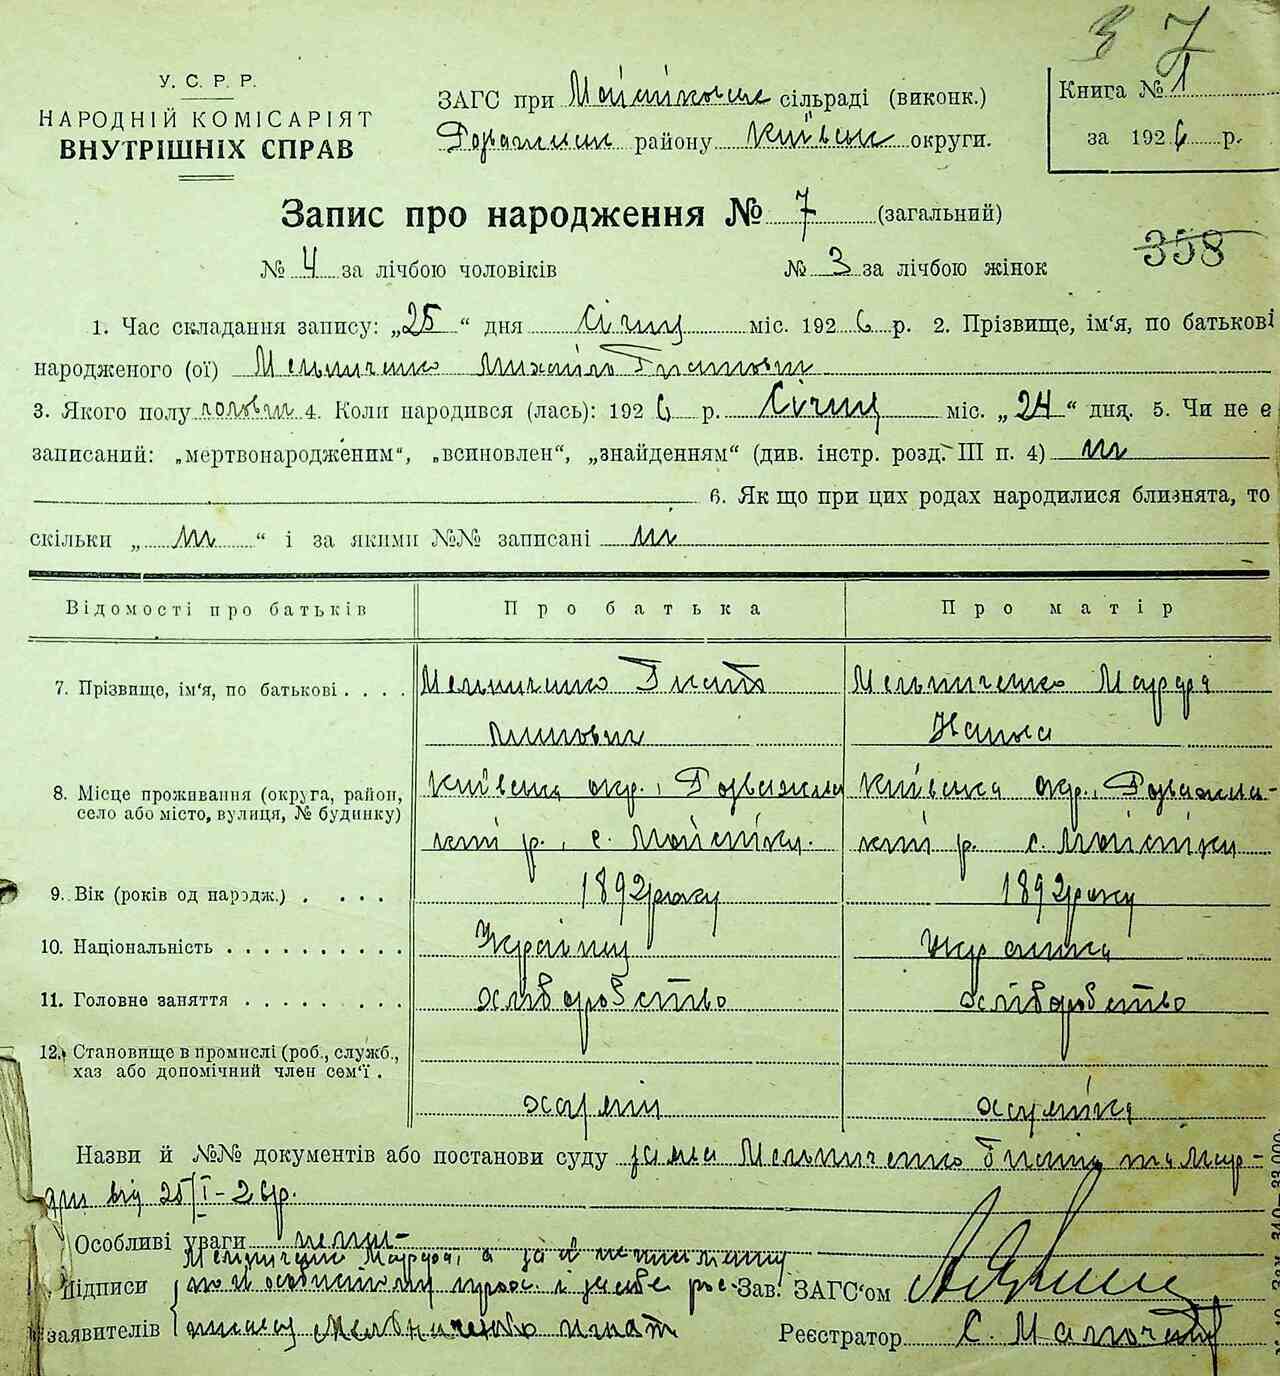 З 7
У. С. Р. Р.
НАРОДНІЙ КОМІСАРІЯТ
ВНУТРІШНІХ СПРАВ
ЗАГС при сільраді (виконк.)
району Київськ округи.
Книга № 1
за 1926 р.
Запис про народження № 7 (загальний)
358
№ 4 за лічбою чоловіків № 3 за лічбою жінок
1. Час складання запису: „25“ дня Січня міс. 1926 р. 2. Прізвище, ім‘я, по батькові
народженого (ої) Мельниченко Михайло Гнатович
3. Якого полу чоловіч 4. Коли народився (лась): 1926 р. Січня міс. „24“ дня. 5. Чи не є
записаний: „мертвонародженим“, „всиновлен“, „знайденням“ (див. інстр. розд. III п. 4) ні
6. Як що при цих родах народилися близнята, то
скільки „ ні “ і за якими №№ записані ні
Відомості про батьків Про батька Про матір
7. Прізвище, ім‘я, по батькові Мельниченко Гнат Мельниченко
8. Місце проживання (округа, район, село або місто, вулиця, № будинку) Київська окр., Розважівс Київська окр., Розважівсь-
кий р., с. кий р. с.
9. Вік (років од народж.) 1892 року 1892 року
10. Національність Українець Українка
11. Головне заняття хліборобство хліборобство
12. Становище в промислі (роб., служб.,
хаз або допомічний член сем‘ї.
хазяїн хазяїка
Назви й №№ документів або постанови суду заява Мельниченко Гната та Мар-
від 25/I-26р.
Особливі уваги немає
Мельниченко а за її неписьменну
Підписи по її особистому прос. і за себе рос- Зав. ЗАГС‘ом
заявителів писався Мельниченко Игнат Реєстратор С.